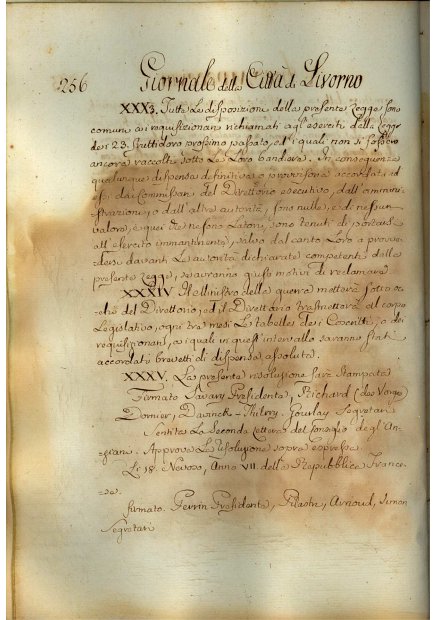 256 Giornale della Città di Livorno
XXX3. Tutte Le disposizioni della presente Legge sono
comuni ai requisizionari richiamati agl'eserciti dalla Legge
dei 23. Fruttidoro prossimo passato, ed i quali non si fossero
ancora raccolti sotto La Loro bandiera. In conseguenza
qualunque dispensa definitiva o provvisoria accordata ad
essi dai Commissari del Direttorio esecutivo, dall'amminis-
trazioni, o dall'altre autorità, sono nulle, e di nessun
valore, e quei che ne sono Latori, sono tenuti di portarsi
all'esercito immantinente, salvo dal canto Loro a provve-
dersi davanti Le autorità dichiarate competenti dalla
presente Legge, se avranno giusti motivi di reclamare
XXXIV Il Ministro della guerra metterà sott'oc-
chio del Direttorio, ed il Direttorio trasmetterà al corpo
Legislativo, ogni tre mesi Le tabelle dei Coscritti, e dei
requisizionari, ai quali in quest'intervallo saranno stati
accordati brevetti di dispensa assoluta.
XXXV. La presente risoluzione sarà Stampata
Firmato Savary Presidente, Richard (dee Vorges)
Dornier, Thibry, Gourlay Segretari
Sentita La Seconda Lettura del Consiglio degl'An-
ziani. Approva La risoluzione sopra espressa.
Li 18. Nevoso, Anno VII. della Repubblica France-
se.
firmato. Perrin Presidente, Pilastri, Arnoud, Simon
Segretari